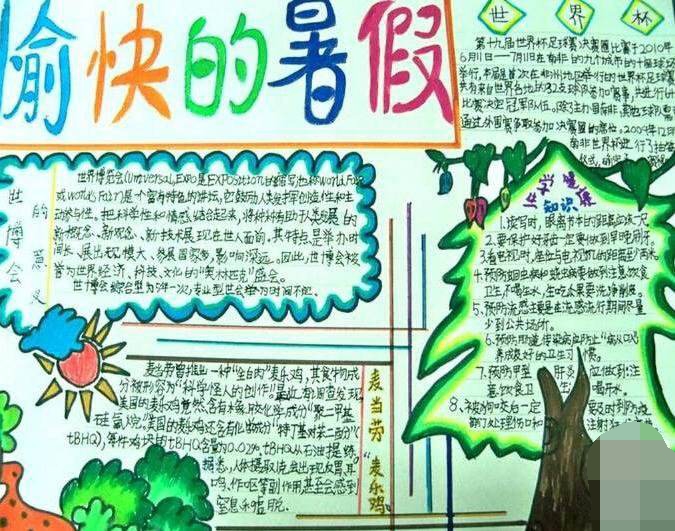 愉快的暑假
世界杯
第十九届世界杯足球赛决赛圈比赛于2010年
6月11日—7月11日在南非的九个城市的十座球场
举行,本届首次在非洲地区举行的世界杯足球赛
共有来自世界各地的32支球队参加赛事,并进行64
比赛决定冠军队伍。除了主办国南非,其他球队需
通过外围赛争取参加决赛圈的席位。2009年12月
南非世界杯进行了抽签
仪式,
世博会
的意义
世界博览会(Universal Expo是EXPOsition的缩写,也称World Fair
或world's Fair)是一个富有特色的讲坛,它鼓励人类发挥创造性和主
动参与性。把科学性和情感结合起来,将种种有助于人类发展的
新概念、新观念、新技术展现在世人面前。其特点是举办时
间长、展出规模大、参展国家多、影响深远。因此,世博会被
誉为世界经济、科技、文化的"奥林匹克"盛会。
世博会综合型为5年一次,专业型世会举办时间不记。
小学生健康
知识集
1、读写时,眼离书本的距离应该一尺
2、要保护好牙齿一定要做到早晚刷牙。
3、看电视时,座位与电视机的距离是2两米
4、预防蛔虫病和蛲虫病要做到注意饮食
卫生,不喝生水,生吃瓜果要洗净削皮。
5、预防流感主要是在流感流行期尽量
少到公共场所。
6、预防肠道传染病应防止"病从口入"
养成良好的卫生习惯。
7、预防甲型肝炎应做到:注
意饮食卫生,喝开水。
8、被狗咬后一定要及时到防疫
部门处理伤口和注射
麦当劳"麦乐鸡"
麦当劳曾推出一种"全白肉"麦乐鸡,其食物成
分被形容为"科学怪人的创作"。最近,有调查发现,
美国的麦乐鸡竟然含有木橡胶化学成分"聚二甲基
硅氧烷。"美国的麦乐鸡还含有化出成分"特丁基对苯二酚"(
tBHQ),每件鸡块的tBHQ含量为0.02%。tBHQ从石油提炼,
据悉,人体摄取1克,会出现反胃、耳
鸣、作呕等副作用,甚至会感到
窒息和虚脱。